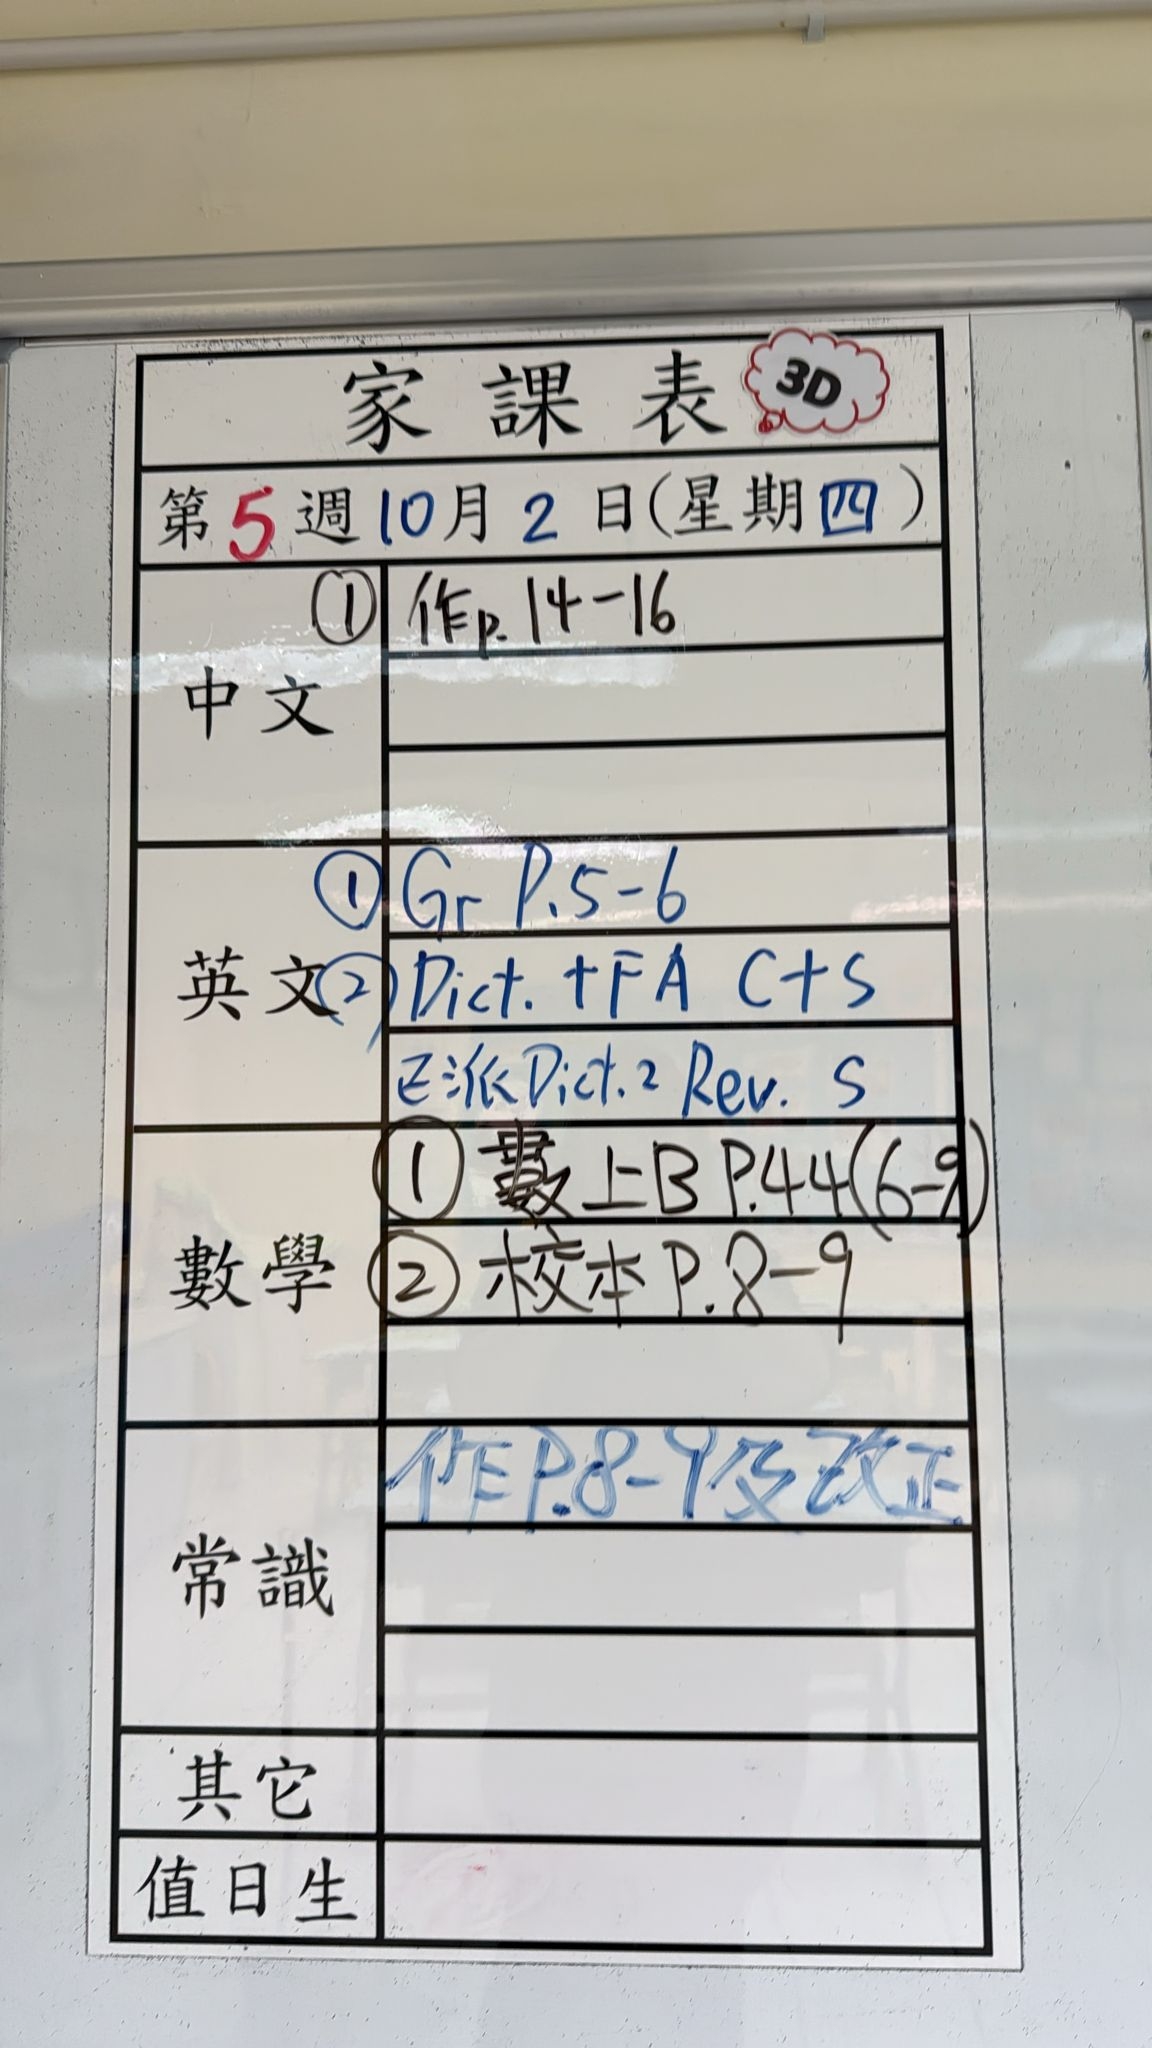 家課表 3D
第5週10月2日(星期四)
中文
① 作p.14-16
英文
① Gr P.5-6
② Dict. + FA C+S
已派Dict.2 Rev. S
數學
① 數上B P.44(6-9)
② 校本 P.8-9
常識
作P.8-9及改正
其它
值日生